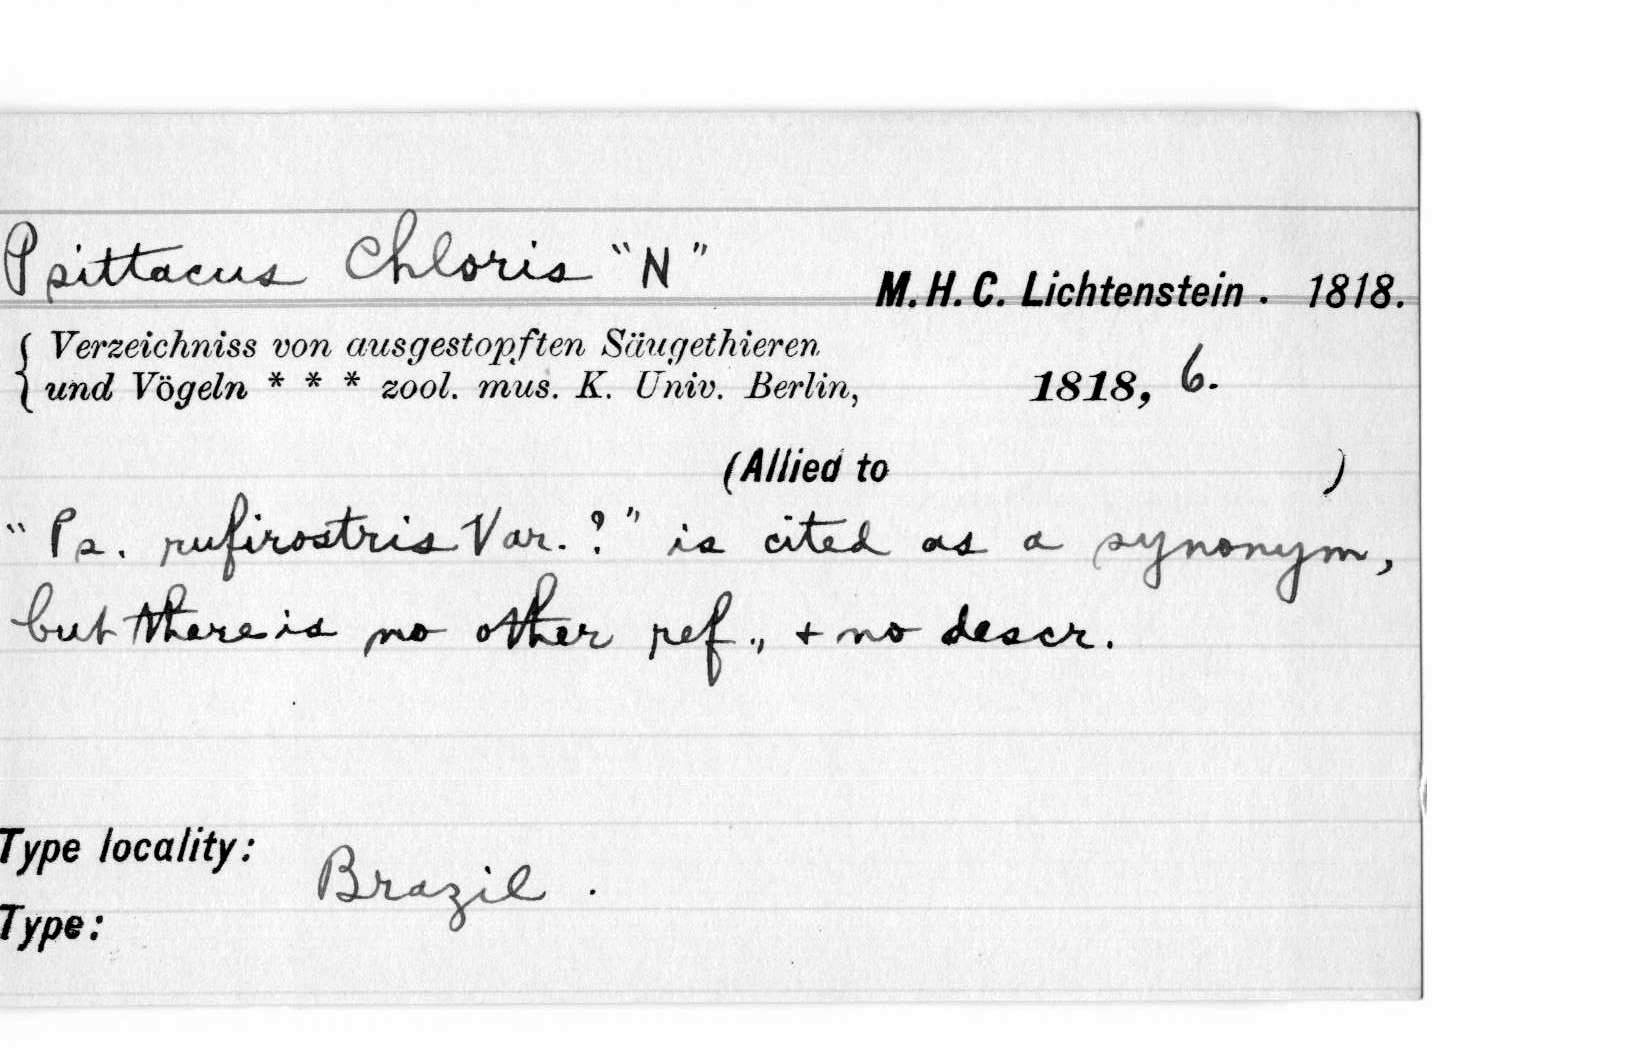 Psittacus Chloris "N"
M. H. C. Lichtenstein. 1818.
Verzeichniss von ausgestopften Säugethieren
und Vögeln * * * zool. mus. K. Univ. Berlin, 1818, 6.
(Allied to )
"Ps. rufirostris Var. ?" is cited as a synonym,
but there is no other ref., + no descr.
Type locality: Brazil.
Type: